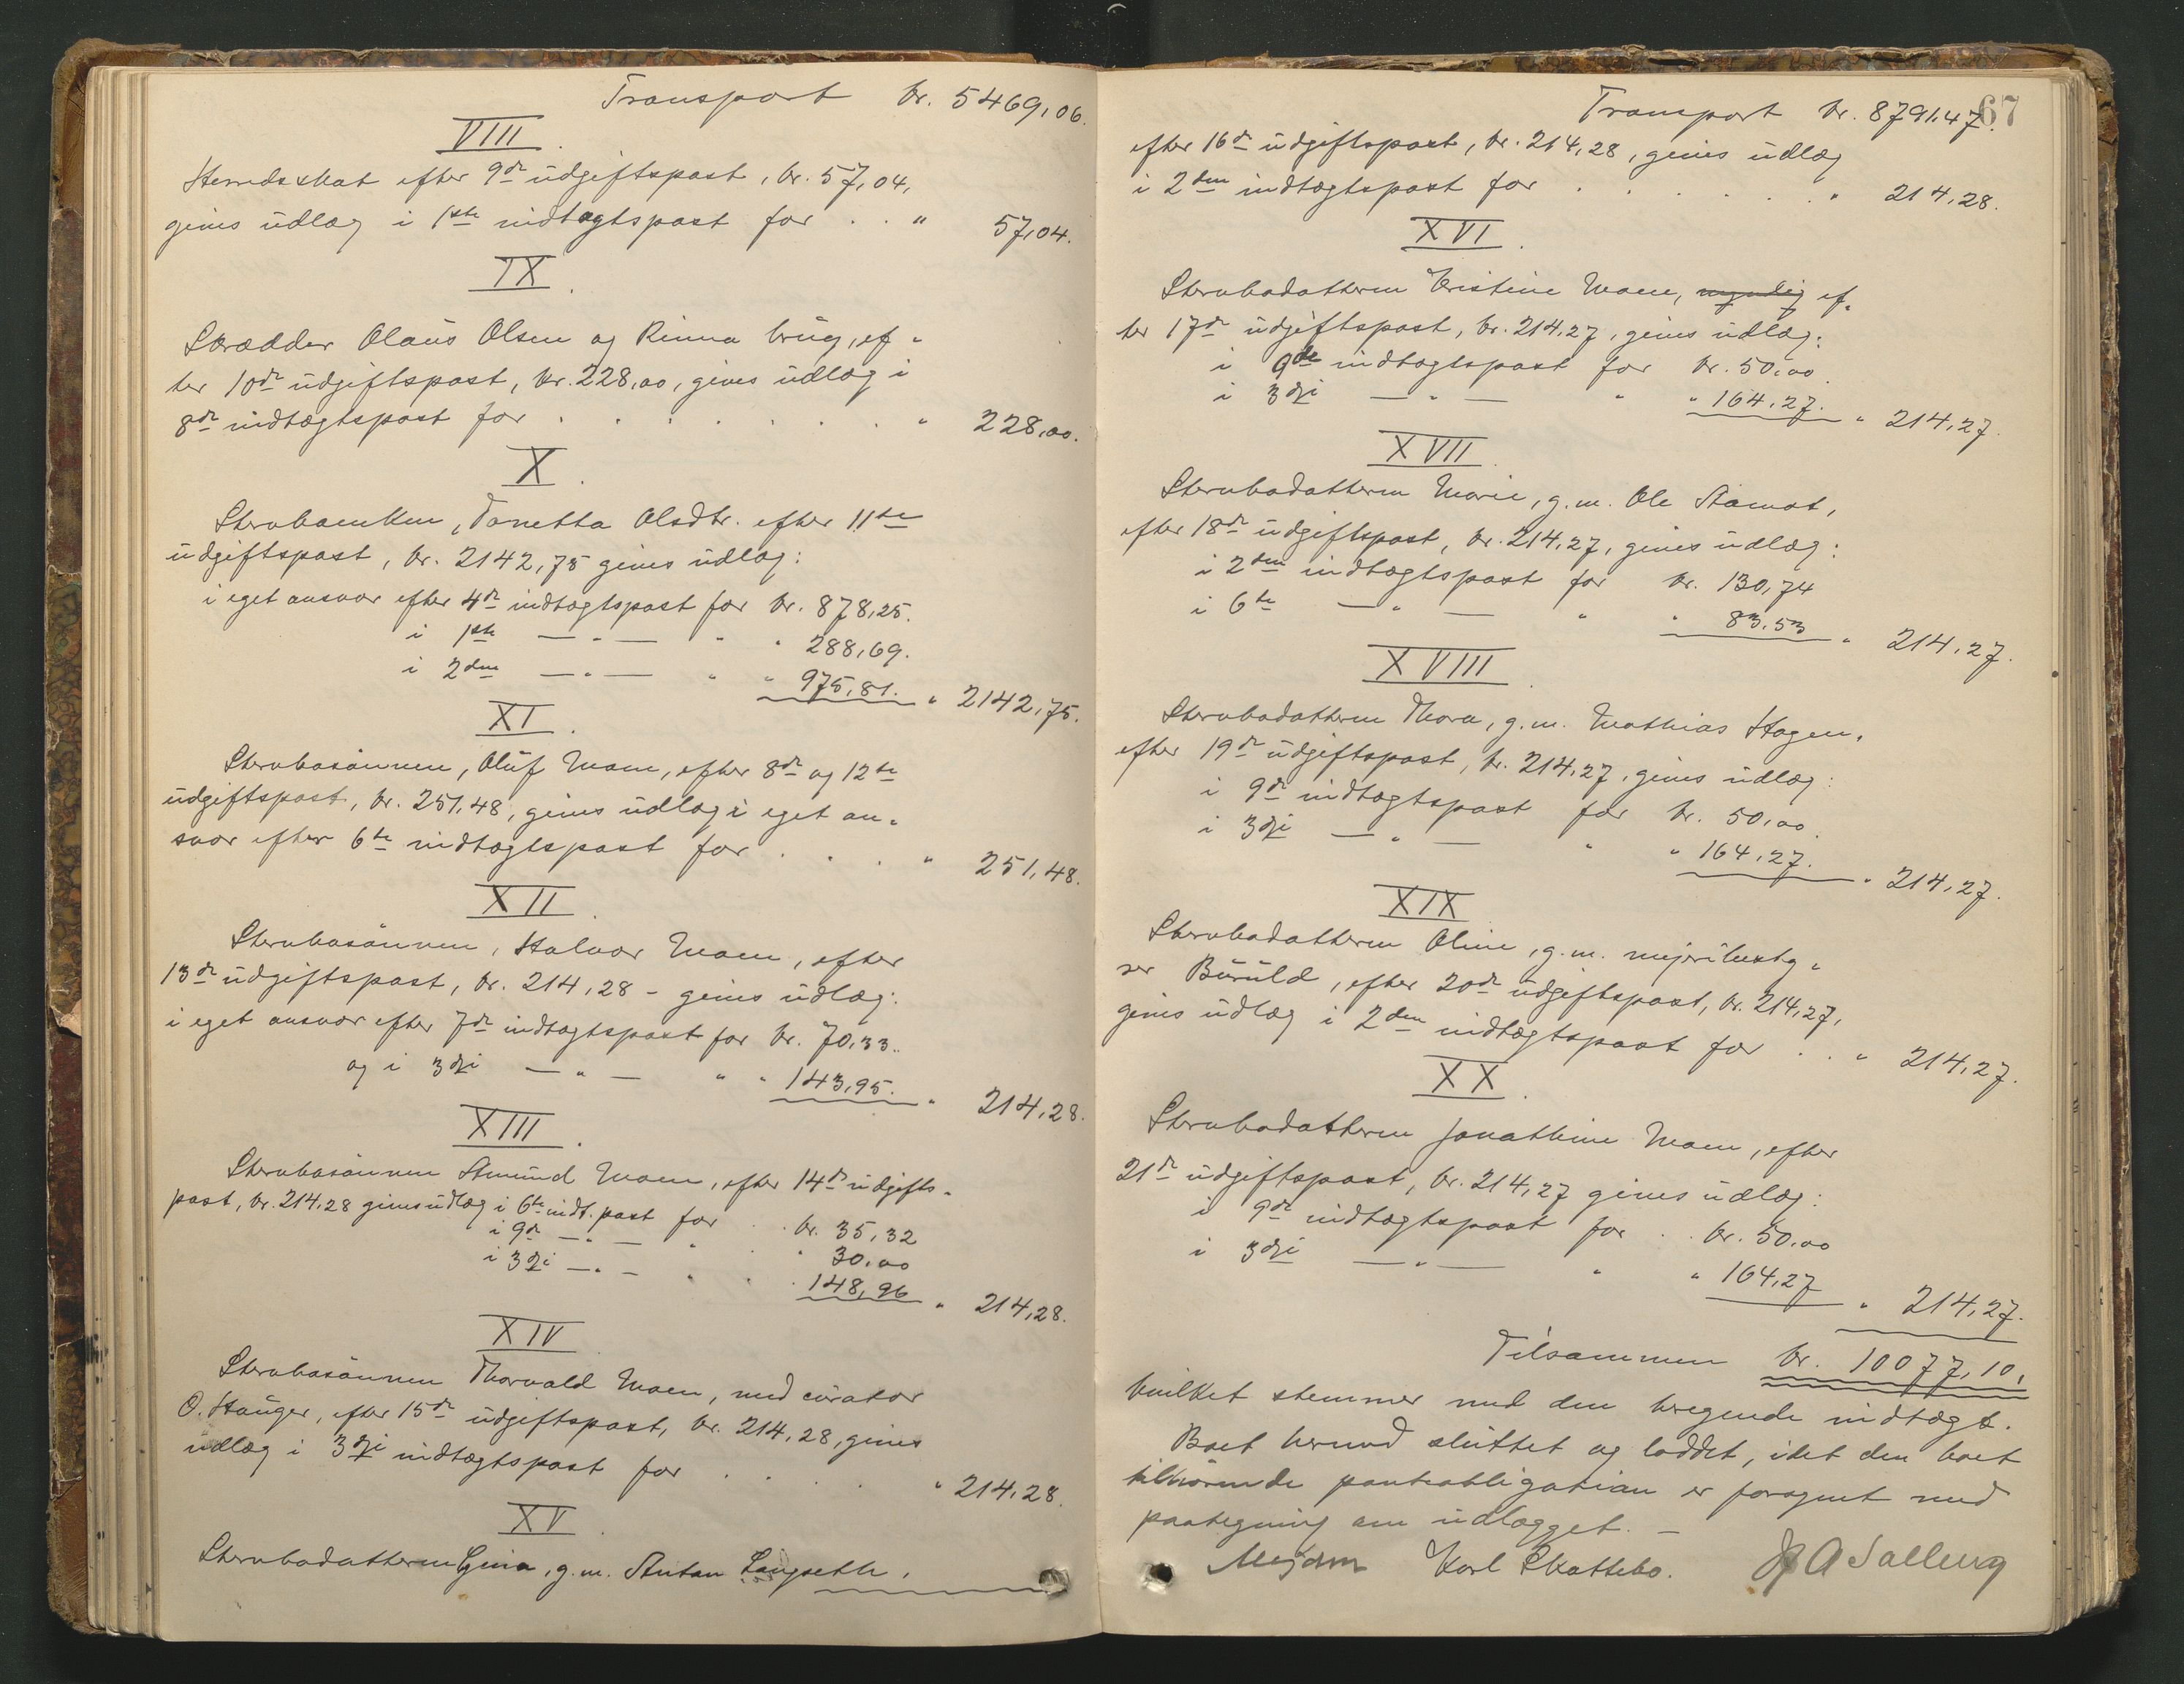 Transport kr. 5469,06.
VIII.
Herredsskat efter 9de udgiftspost, kr. 57,04,
gives udlæg i 1ste indtægtspost for . . " 57,04.
IX.
Skrædder Olaus Olsen og Rinna brug, ef-
ter 10de udgiftspost, kr. 228,00, gives udlæg i
8de indtægtspost for . . . . . . " 228,00.
X.
Stervboenken, Tonetta Olsdtr. efter 11te
udgiftspost, kr. 2142,75 gives udlæg:
i eget ansvar efter 4de indtægtspost for kr. 878,25.
i 1ste — " — " " 288,69.
i 2den — " — " " 975,81. " 2142,75.
XI.
Stervbosönnen, Oluf Moen, efter 8de og 12te
udgiftspost, kr. 251,48, gives udlæg i eget an-
svar efter 6te indtægtspost for . . . " 251,48.
XII.
Stervbosönnen, Halvor Moen, efter
13de udgiftspost, kr. 214,28 - gives udlæg:
i eget ansvar efter 7de indtægtspost for kr. 70,33.
og i 3dji — " — " " 143,95. " 214,28.
XIII.
Stervbosönnen Amund Moen, efter 14de udgifts-
post, kr. 214,28 gives udlæg i 6te indt. post for . . kr. 35,32
i 9de — " — " " 30,00
i 3dji — " — " " 148,96 " 214,28.
XIV
Stervbosönnen Thorvald Moen, med curator
O. Hauger, efter 15de udgiftspost, kr. 214,28, gives
udlæg i 3dji indtægtspost for . . . . " 214,28.
XV.
Stervbodatteren Gina, g.m. Anton Langseth,
67
Transport kr. 8791,47.
efter 16de udgiftspost, kr. 214,28, gives udlæg
i 2den indtægtspost for . . . . . . " 214,28.
XVI.
Stervbodatteren Kristine Moen, myndig ef-
ter 17de udgiftspost, kr. 214,27, gives udlæg:
i 9de indtægtspost for kr. 50,00.
i 3dji — " — " " 164,27. " 214,27.
XVII.
Stervbodatteren Marie, g.m. Ole Aamot,
efter 18de udgiftspost, kr. 214,27, gives udlæg:
i 2den indtægtspost for kr. 130,74
i 6te — " — " " 83,53 " 214,27.
XVIII.
Stervbodatteren Thora, g.m. Mathias Hagen,
efter 19de udgiftspost, kr. 214,27, gives udlæg:
i 9de indtægtspost for kr. 50,00.
i 3dji — " — " " 164,27. " 214,27.
XIX
Stervbodatteren Oline, g.m. mejeribesty-
rer Buruld, efter 20de udgiftspost, kr. 214,27,
gives udlæg i 2den indtægtspost for . . " 214,27.
XX.
Stervbodatteren Jonathine Moen, efter
21de udgiftspost, kr. 214,27 gives udlæg:
i 9de indtægtspost for . . kr. 50,00
i 3dji — " — " " 164,27 " 214,27.
Tilsammen kr. 10077,10,
hvilket stemmer med den beregnede indtægt.
Boet hermed sluttet og loddet, idet den boet
tilhörende pantobligation er forsynet med
paategning om udlægget. —
Mejdam Karl Skattebo.